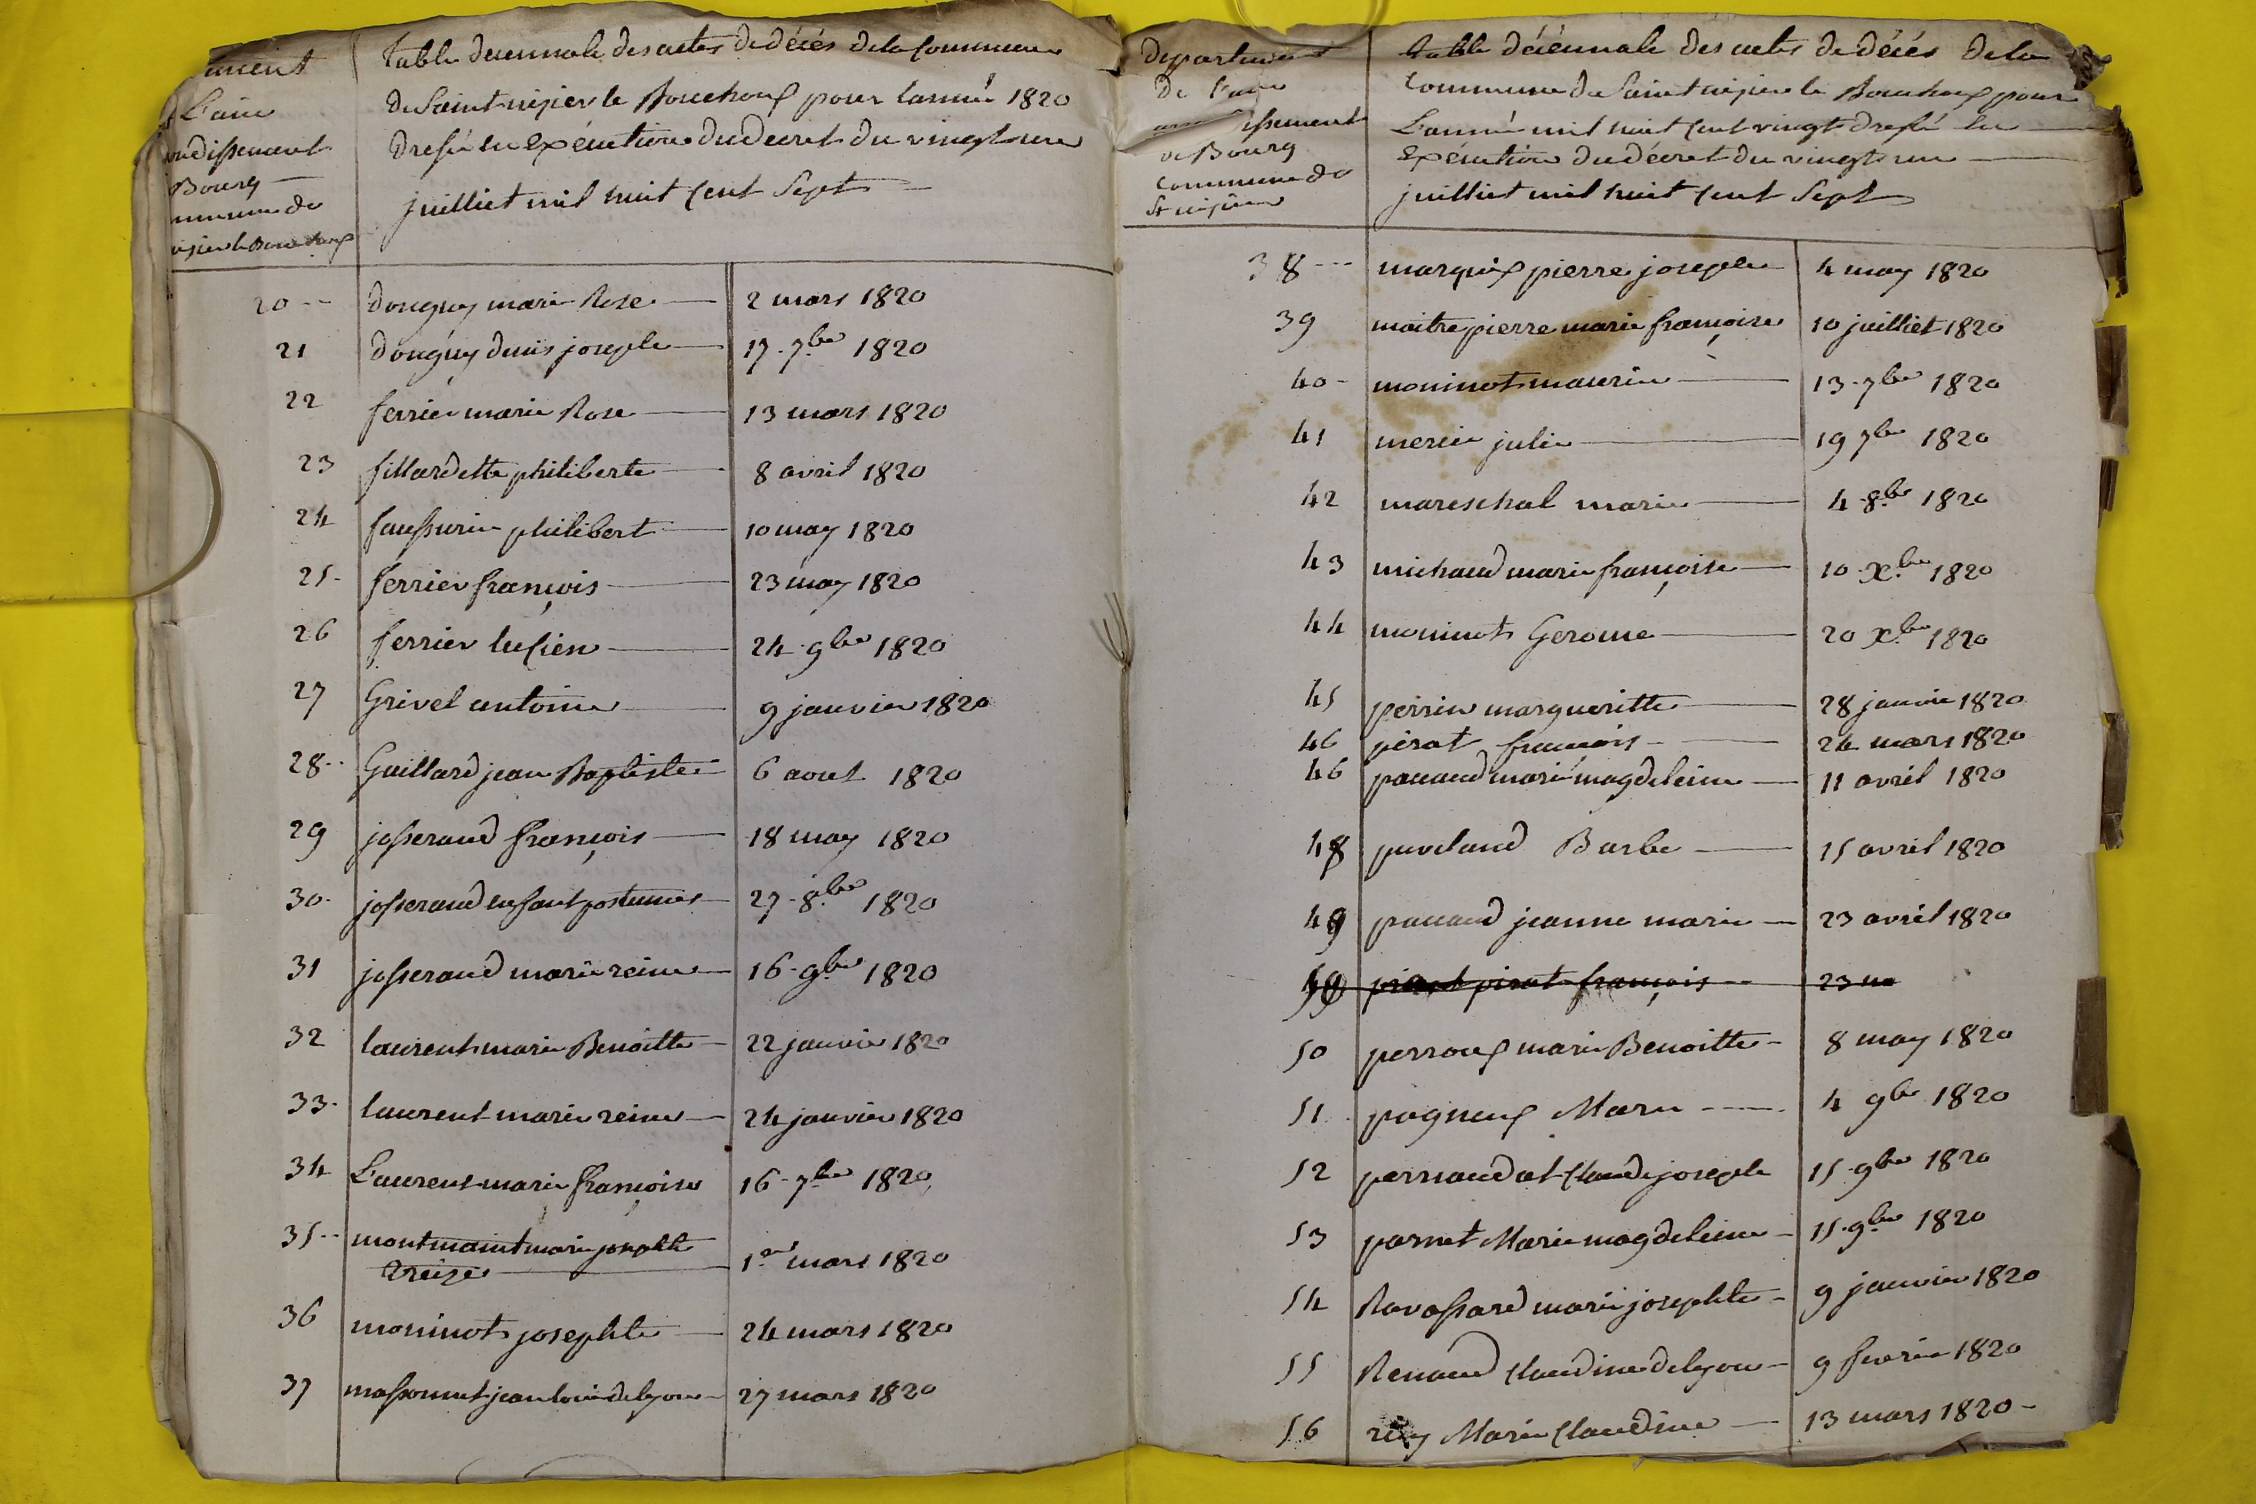 table decennale des actes de décés de la Commune
de Saint nizier le Bouchoux pour l'année 1820
dressée en exécution du décret du vingt un
juilliet mil huit Cent Sept
L'ain
Bourg
20 -- donguy marie Rose 2 mars 1820
21 donguy denis joseph 17. 7bre 1820
22 ferrier marie Rose 13 mars 1820
23 fillardette philiberte 8 avril 1820
24 philibert 10 may 1820
25 - ferrier françois 23 may 1820
26 ferrier lucien 24. 9bre 1820
27 Grivel antoine 9 janvier 1820
28 -- Guillard jean Baptiste 6 aout 1820
29 josserand françois 18 may 1820
30 - josserand enfant postumes 27. 8bre 1820
31 josserand marie reine 16. 9bre 1820
32 laurent marie Benoitte 22 janvier 1820
33 - laurent marie reine 24 janvier 1820
34 Laurent marie françoise 16. 7bre 1820
35 -- marie josephte
treize 1er mars 1820
36 moninot josephte 24 mars 1820
37 massonnet jean louis de lyon 27 mars 1820
departement
De l'ain
de Bourg
Commune de
St nizier
table décénnale des actes de décés de la
Commune de Saint nizier le Bouchoux pour
L'année mil huit Cent vingt dressée en
Exécution du décret du vingt un
juilliet mil huit Cent Sept
38 --- marquis pierre joseph 4 may 1820
39 maitrepierre marie françoise 10 juilliet 1820
40 - moninot maurice 13. 7bre 1820
41 mercier julie 19 7bre 1820
42 mareschal marie 4. 8bre 1820
43 michaud marie françoise 10. Xbre 1820
44 moninot Gerome 20 Xbre 1820
45 perrin margueritte 28 janvier 1820
46 pirat françois 24 mars 1820
46 pauaud marie magdeleine 11 avril 1820
48 Barbe 15 avril 1820
49 pauaud jeanne marie 23 avril 1820
50 pirat françois 23 ma
50 perroux marie Benoitte 8 may 1820
51 pagneux Marie 4 9bre 1820
52 pernaudat Claude joseph 15. 9bre 1820
53 parnet Marie magdeleine 15. 9bre 1820
54 Ravassard marie josephte 9 janvier 1820
55 Renaud Claudine de lyon 9 fevrier 1820
56 rey Marie Claudine 13 mars 1820 -